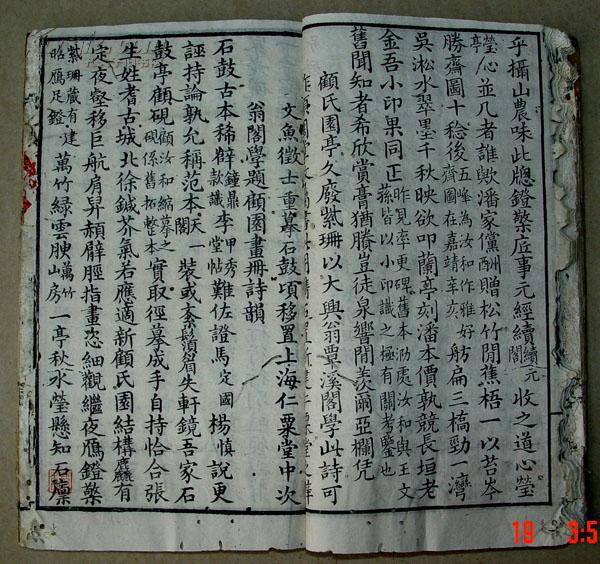 乎攝山農味此牕鐙檠庄事元經續續元閣收之道心瑩
瑩心亭並几者誰歟潘家儻酬贈松竹閒蕉梧一以苔岑
勝齋圖十稔後五峰為汝和作雅好齋圖在嘉靖辛亥舫扁三橋勁一灣
吳淞水翠墨千秋映欲叩蘭亭刻潘本價孰競長垣老
金吾小印果同正昨見率更碑舊本泐處汝和與王文蓀皆以小印識之極有關考鑒也
舊聞知者希欣賞膏猶賸豈徒泉響聞羨爾亞欄凭
顧氏園亭久廢紫珊以大興翁覃溪閣學此詩可
文魚徵士重摹石鼓頃移置上海仁粟堂中次
翁閣學題顧園畫冊詩韻
石鼓古本稀辥鐘鼎款識李甲秀堂帖難佐證馬定國楊慎說更
誣持論孰允稱范本天一閣裝或紊鬚眉失軒鏡吾家石
鼓亭顧硯顧汝和縮摹之硯係舊拓整本實取徑摹成手自持恰合張
生姓耆古城北徐鍼芥氣若應適新顧氏園結構麤有
定夜壑移巨航肩舁頳臂脛指畫恣細觀繼夜鴈鐙檠
紫珊藏有建昭鴈足鐙萬竹綠雲腴萬竹山房一亭秋水瑩懸知石廪
19 3:5